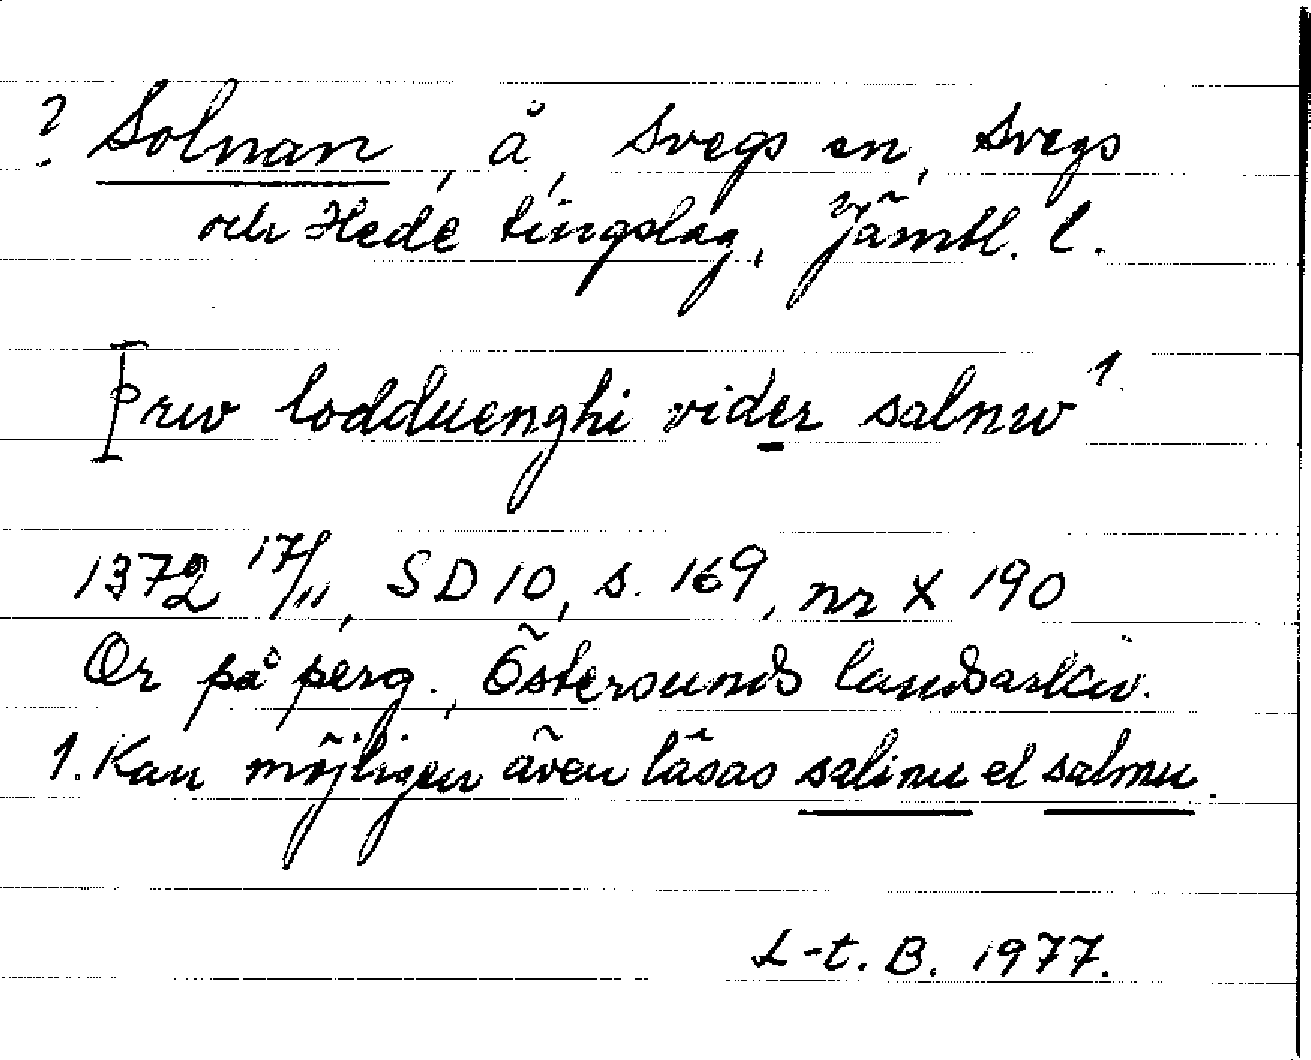 ? Solnan, å, Svegs sn, Svegs
och Hede tingslag, Jämtl. l.
[þrw lodduenghi vider salnw¹
1372 17/11, SD 10, s. 169, nr X 190
Or på perg., Östersunds landsarkiv.
1. Kan möjligen även läsas salinu el salmu.
L-t. B. 1977.